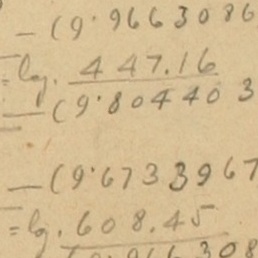 — (9·9663086
= log. 447.16
— (9·804403
— (9·6733967
= log. 608.45